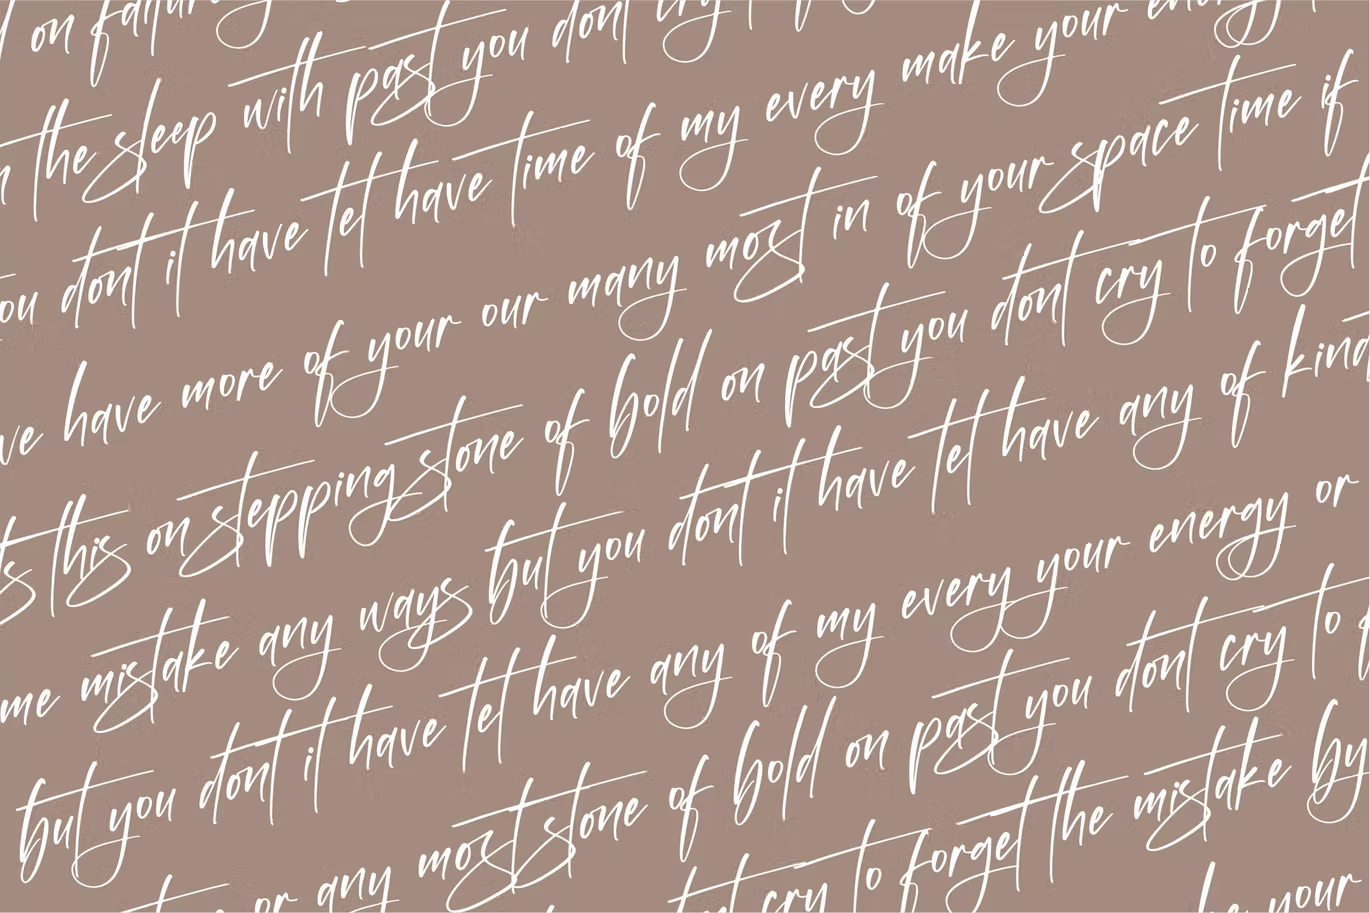 on failure
the sleep with past you dont cry
you dont it have let have time of my every make your energy
have more of your our many most in of your space time if
this on stepping stone of bold on past you dont cry to forget
me mistake any ways but you dont it have let have any of kind
but you dont it have let have any of my every your energy or
or any most stone of bold on past you dont cry to
cry to forget the mistake by
your